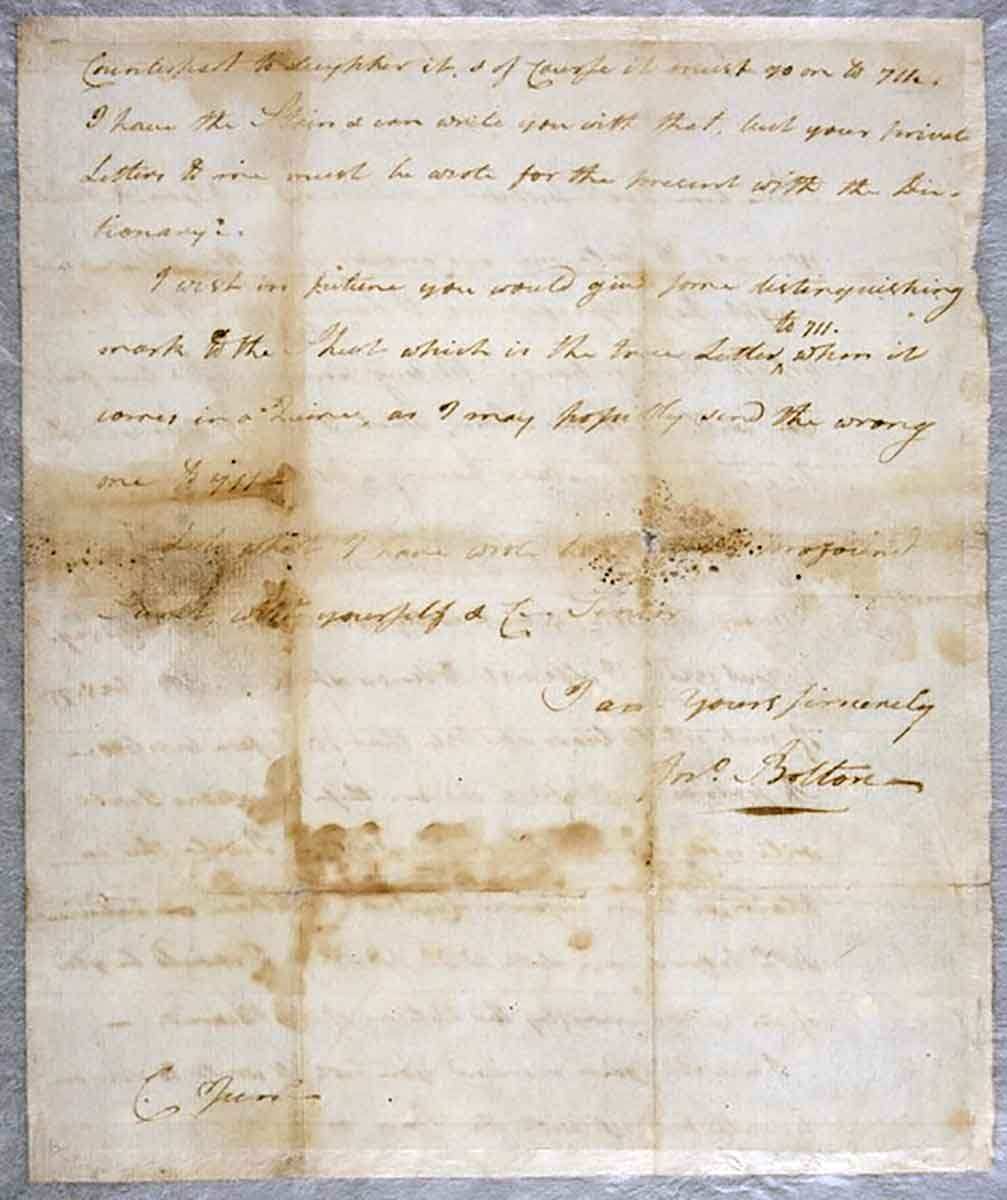 Counterpart to decypher it, & of Course it must go on to 711.
I have the Stain & can write you with that, but your private
Letters to me must be wrote for the present with the Dic-
tionary.
I wish in future you would give some distinguishing
mark to the Sheet which is the true Letter to 711. when it
comes in a Quire, as I may possibly send the wrong
one to 711
what I have wrote be profound
with yourself & C. Senior
I am Yours sincerely
Jno. Bolton
C. Junr